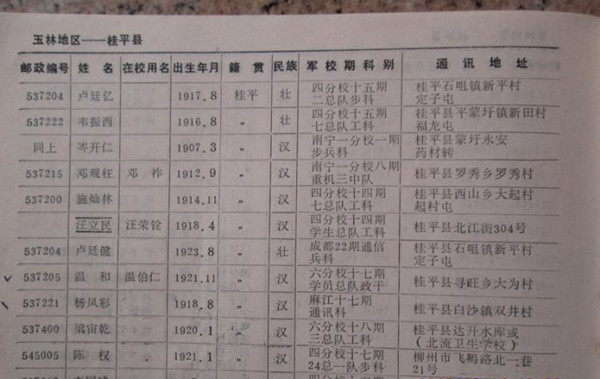 玉林地区——桂平县
邮政编号 姓名 在校用名 出生年月 籍贯 民族 军校期科别 通讯地址
537204 卢廷亿 1917.8 桂平 壮 四分校十五期 桂平县石咀镇新平村
二总队步科 定子屯
537222 韦振西 1916.8 〃 壮 四分校十五期 桂平县平蒙圩镇新田村
七总队工科 福龙屯
同上 岑开仁 1907.3 〃 汉 南宁一分校一期 桂平县蒙圩永安
步兵科 药材转
537215 邓观枉 邓祚 1912.9 〃 汉 南宁一分校八期 桂平县罗秀乡罗秀村
重机三中队
537200 施灿林 1914.11 〃 汉 四分校十四期 桂平县西山乡大起村
七总队工科 起村屯
汪立民 汪荣铨 1918.4 〃 汉 四分校十四期 桂平县北江街304号
学生总队工科
537204 卢廷健 1923.8 〃 壮 成都22期通信 桂平县石咀镇新平村
兵科 定子屯
537205 温和 温伯仁 1921.11 〃 汉 六分校十七期 桂平县寻旺乡大为村
学员总队政干
537221 杨凤彩 1918.8 〃 汉 麻江十七期 桂平县白沙镇双井村
通讯科
537400 梁宙乾 1920.1 〃 汉 六分校十八期 桂平县达开水库或
三总队工科 (北流卫生学校)
545005 陈权 1921.1 〃 汉 四分校十七期 柳州市飞鹅路北一巷
24总一队步科 21号